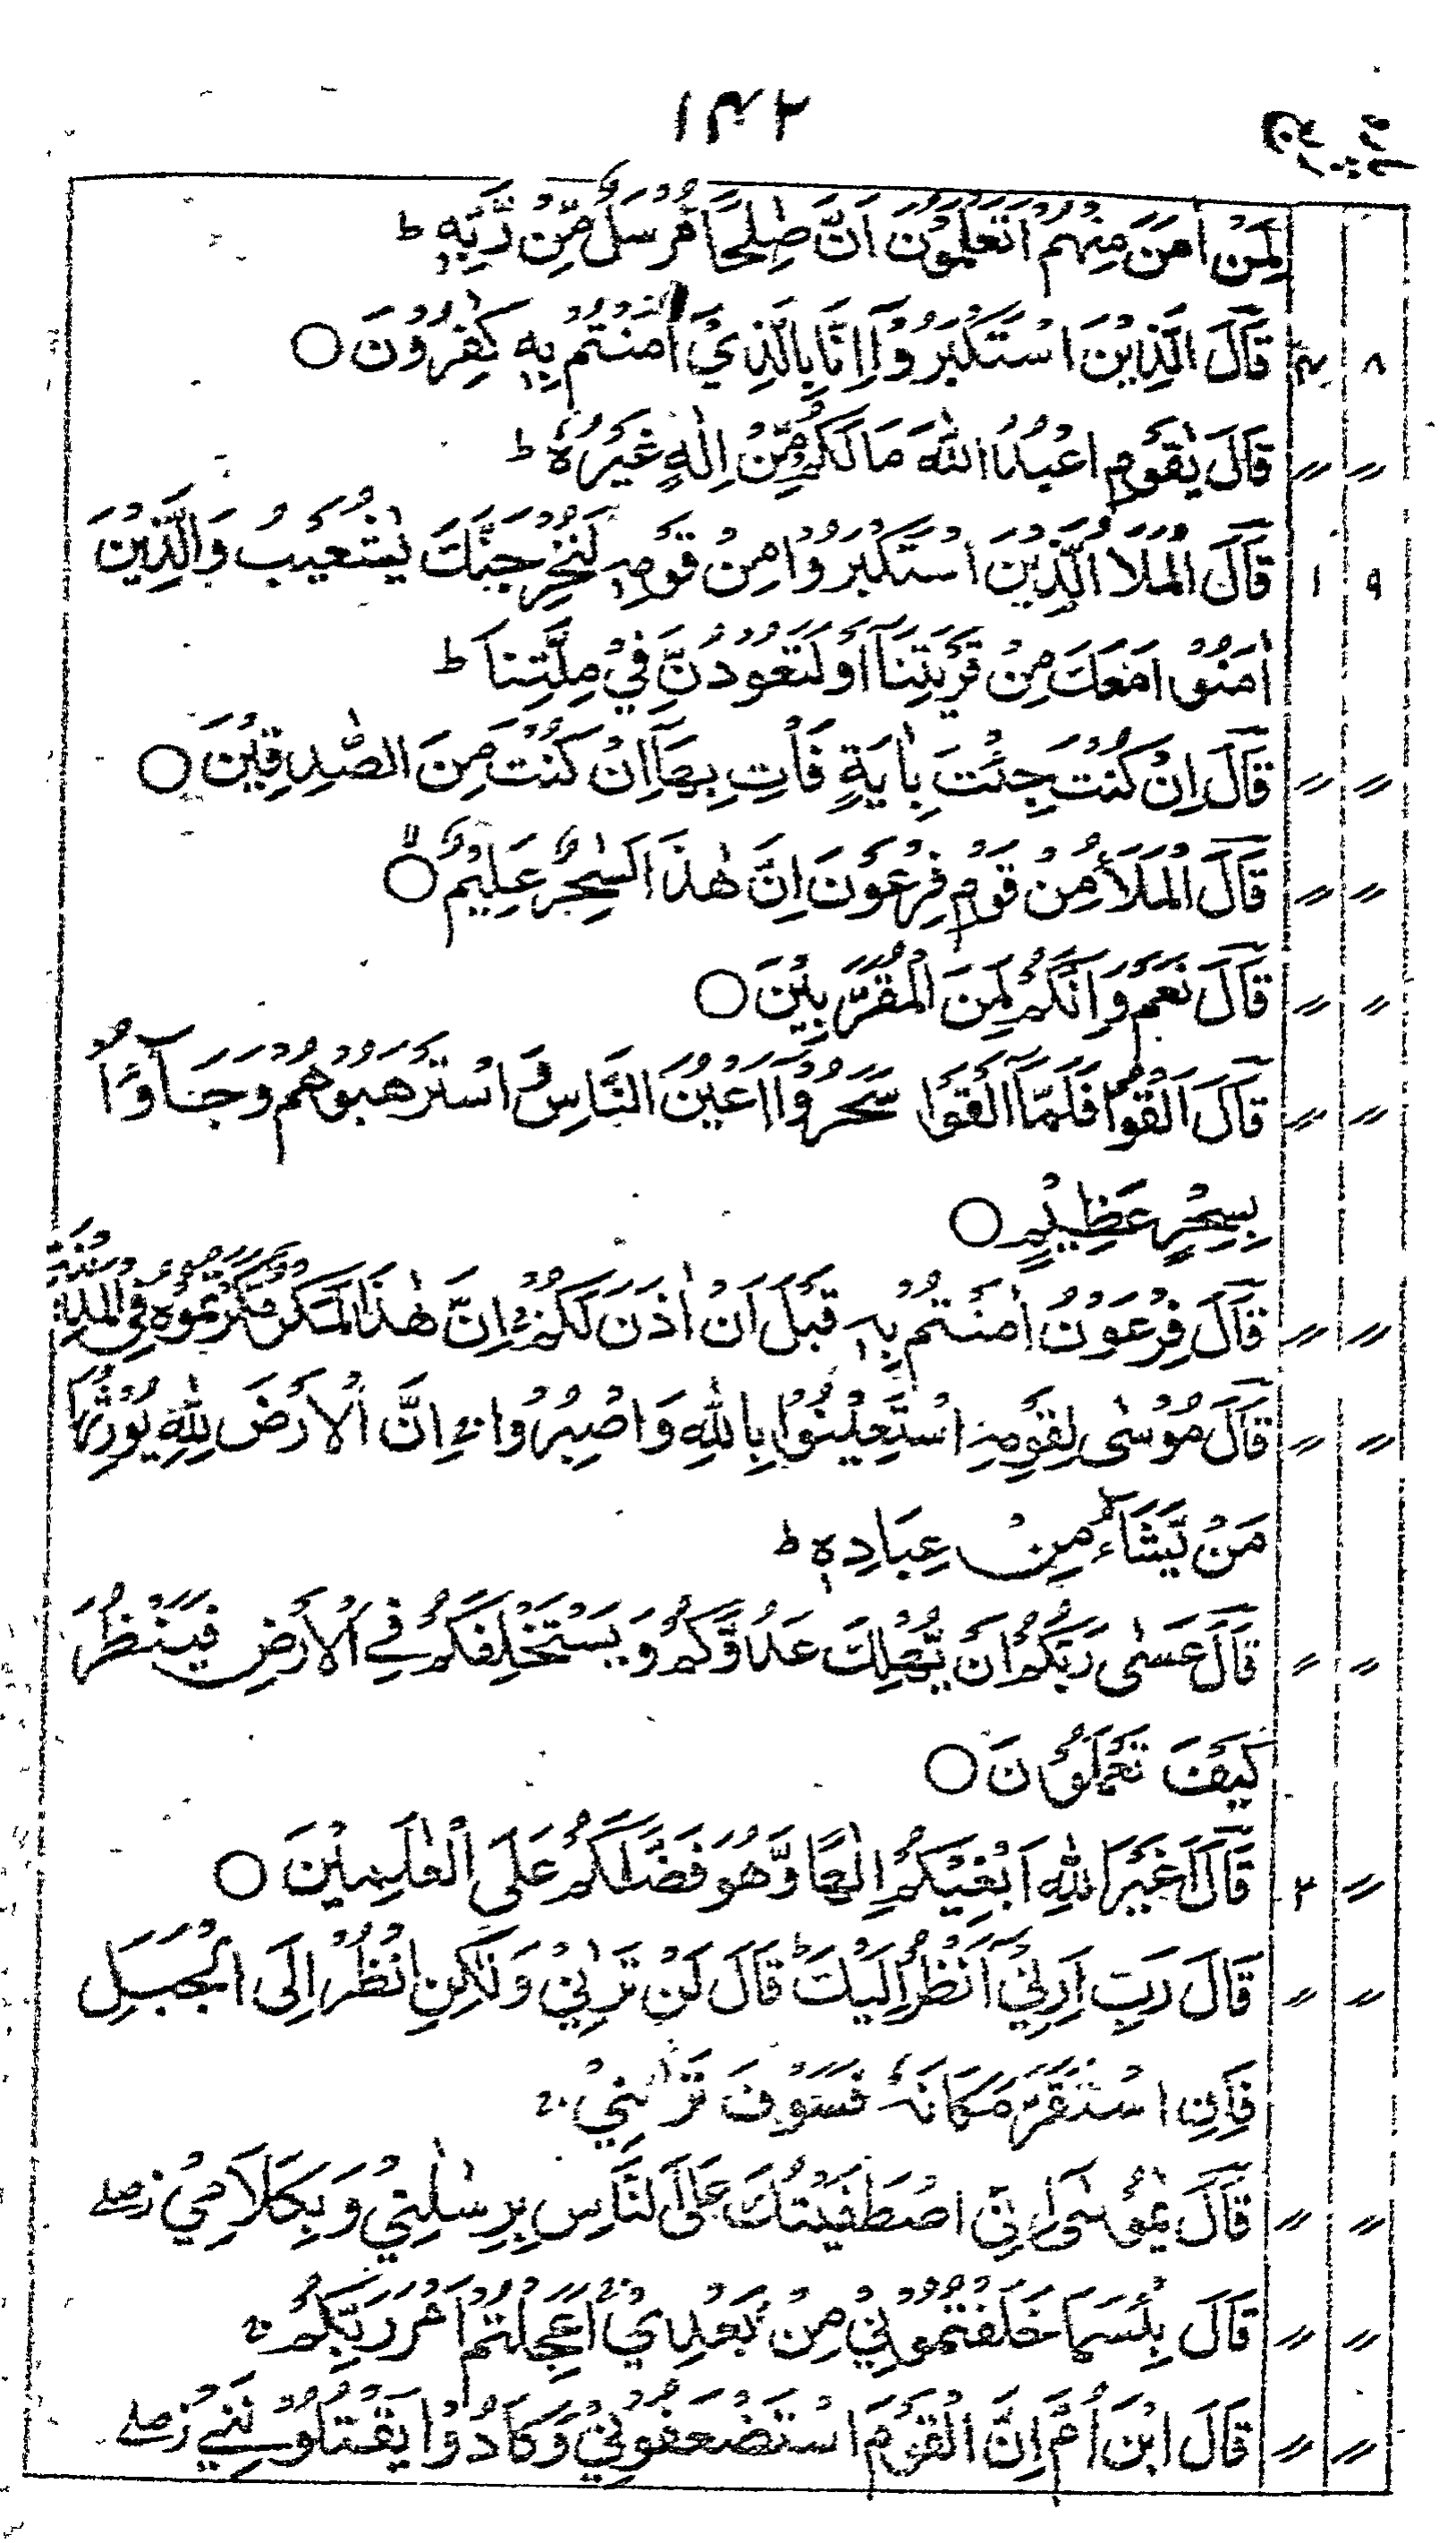 ١٤٢
پارہ
لِمَنْ اٰمَنَ مِنْهُمْ اَتَعْلَمُوْنَ اَنَّ صٰلِحًا مُّرْسَلٌ مِّنْ رَّبِّهٖ ط
٨ ٤ قَالَ الَّذِيْنَ اسْتَكْبَرُوْٓا اِنَّا بِالَّذِيْٓ اٰمَنْتُمْ بِهٖ كٰفِرُوْنَ ○
〃 〃 قَالَ يٰقَوْمِ اعْبُدُوا اللّٰهَ مَا لَكُمْ مِّنْ اِلٰهٍ غَيْرُهٗ ط
٩ ١ قَالَ الْمَلَاُ الَّذِيْنَ اسْتَكْبَرُوْا مِنْ قَوْمِهٖ لَنُخْرِجَنَّكَ يٰشُعَيْبُ وَالَّذِيْنَ
اٰمَنُوْا مَعَكَ مِنْ قَرْيَتِنَآ اَوْ لَتَعُوْدُنَّ فِيْ مِلَّتِنَا ط
〃 〃 قَالَ اِنْ كُنْتَ جِئْتَ بِاٰيَةٍ فَاْتِ بِهَآ اِنْ كُنْتَ مِنَ الصّٰدِقِيْنَ ○
〃 〃 قَالَ الْمَلَاُ مِنْ قَوْمِ فِرْعَوْنَ اِنَّ هٰذَا لَسٰحِرٌ عَلِيْمٌ ○ لا
〃 〃 قَالَ نَعَمْ وَاِنَّكُمْ لَمِنَ الْمُقَرَّبِيْنَ ○
〃 〃 قَالَ اَلْقُوْا فَلَمَّآ اَلْقَوْا سَحَرُوْٓا اَعْيُنَ النَّاسِ وَاسْتَرْهَبُوْهُمْ وَجَآءُوْ
بِسِحْرٍ عَظِيْمٍ ○
〃 〃 قَالَ فِرْعَوْنُ اٰمَنْتُمْ بِهٖ قَبْلَ اَنْ اٰذَنَ لَكُمْ ج اِنَّ هٰذَا لَمَكْرٌ مَّكَرْتُمُوْهُ فِي الْمَدِيْنَةِ
〃 〃 قَالَ مُوْسٰى لِقَوْمِهِ اسْتَعِيْنُوْا بِاللّٰهِ وَاصْبِرُوْا ج اِنَّ الْاَرْضَ لِلّٰهِ يُوْرِثُهَا
مَنْ يَّشَآءُ مِنْ عِبَادِهٖ ط
〃 〃 قَالَ عَسٰى رَبُّكُمْ اَنْ يُّهْلِكَ عَدُوَّكُمْ وَيَسْتَخْلِفَكُمْ فِي الْاَرْضِ فَيَنْظُرَ
كَيْفَ تَعْمَلُوْنَ ○
〃 ٢ قَالَ اَغَيْرَ اللّٰهِ اَبْغِيْكُمْ اِلٰهًا وَّهُوَ فَضَّلَكُمْ عَلَى الْعٰلَمِيْنَ ○
〃 〃 قَالَ رَبِّ اَرِنِيْٓ اَنْظُرْ اِلَيْكَ ط قَالَ لَنْ تَرٰىنِيْ وَلٰكِنِ انْظُرْ اِلَى الْجَبَلِ
فَاِنِ اسْتَقَرَّ مَكَانَهٗ فَسَوْفَ تَرٰىنِيْ ج
〃 〃 قَالَ يٰمُوْسٰٓى اِنِّى اصْطَفَيْتُكَ عَلَى النَّاسِ بِرِسٰلٰتِيْ وَبِكَلَامِيْ ز صلے
〃 〃 قَالَ بِئْسَمَا خَلَفْتُمُوْنِيْ مِنْۢ بَعْدِيْ ج اَعَجِلْتُمْ اَمْرَ رَبِّكُمْ ج
〃 〃 قَالَ ابْنَ اُمَّ اِنَّ الْقَوْمَ اسْتَضْعَفُوْنِيْ وَكَادُوْا يَقْتُلُوْنَنِيْ ز صلے